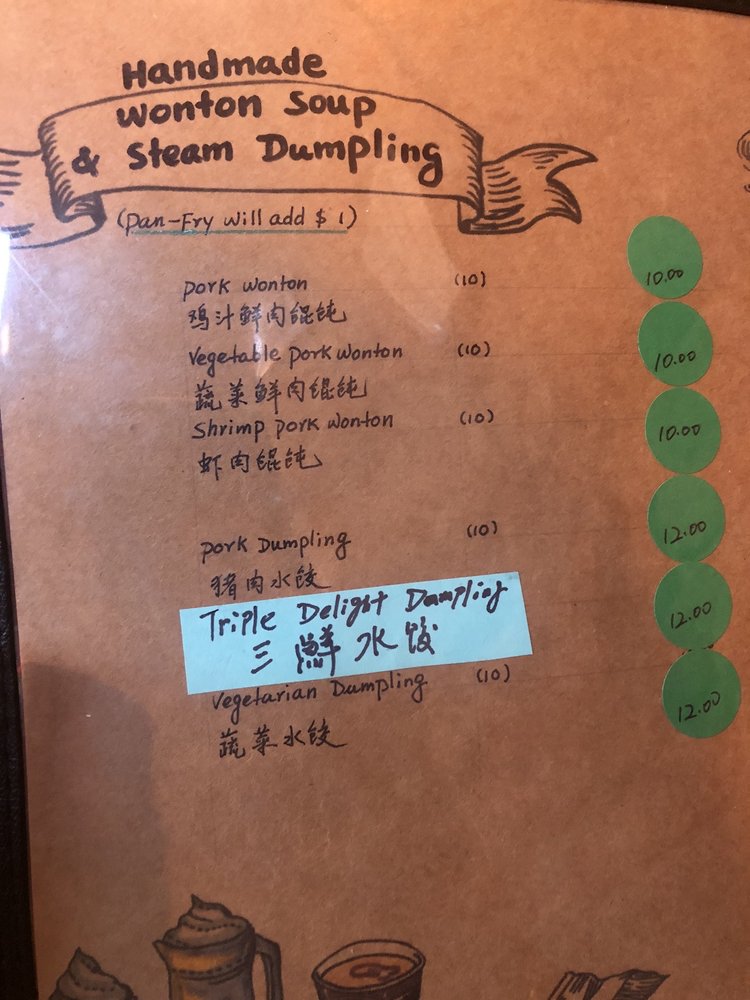 Handmade
Wonton Soup
& Steam Dumpling
(Pan-Fry will add $1)
Pork Wonton (10) 10.00
鸡汁鲜肉馄饨
Vegetable Pork Wonton (10) 10.00
蔬菜鲜肉馄饨
Shrimp Pork Wonton (10) 10.00
虾肉馄饨
Pork Dumpling (10) 12.00
猪肉水饺
Triple Delight Dumpling 12.00
三鲜水饺
Vegetarian Dumpling (10) 12.00
蔬菜水饺